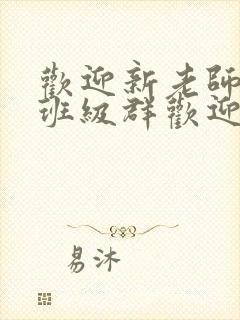 歡迎新老師
班級群歡迎
易沐